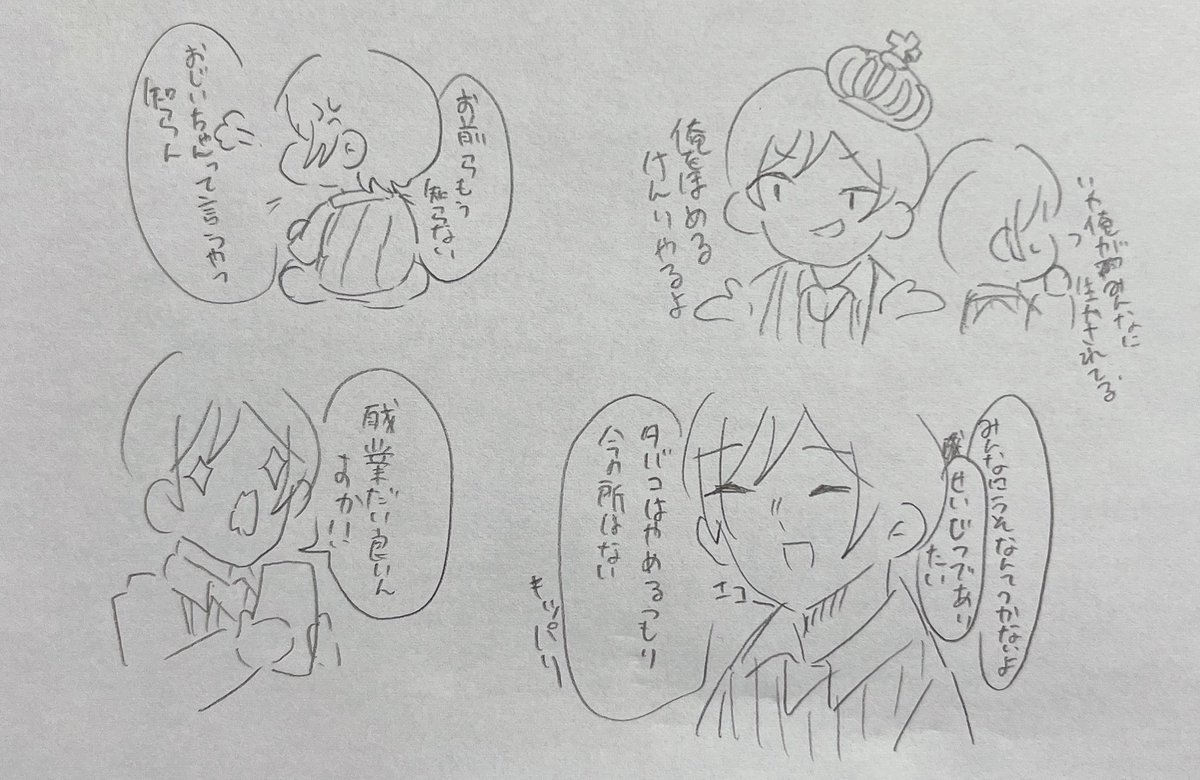 俺をほめる
けんりやるよ
いや俺がみんなに
生かされてる
お前らもう
知らない
おじいちゃんって言うやつ
知らん
みんなにうそなんてつかないよ
せいじつであり
たい
タバコはやめるつもり
今の所はない
ニコ
キッパリ
残業だい良いん
すか!!